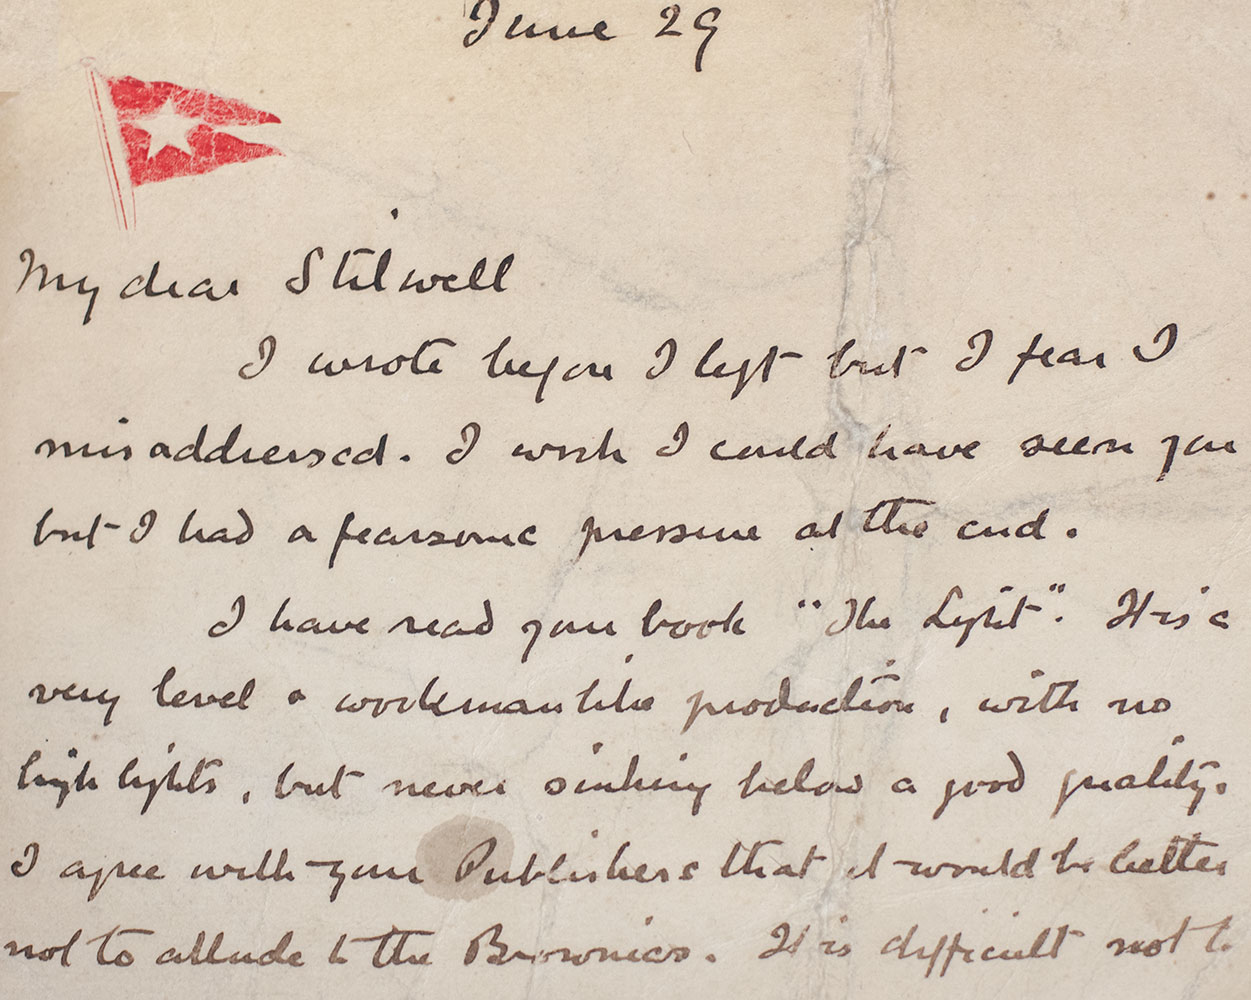 June 29
My dear Stilwell
I wrote before I left but I fear I
misaddressed. I wish I could have seen you
but I had a fearsome pressure at the end.
I have read your book "The Light". It is a
very level & workmanlike production, with no
high lights, but never sinking below a good quality.
I agree with your Publishers that it would be better
not to allude to the Brownies. It is difficult not to